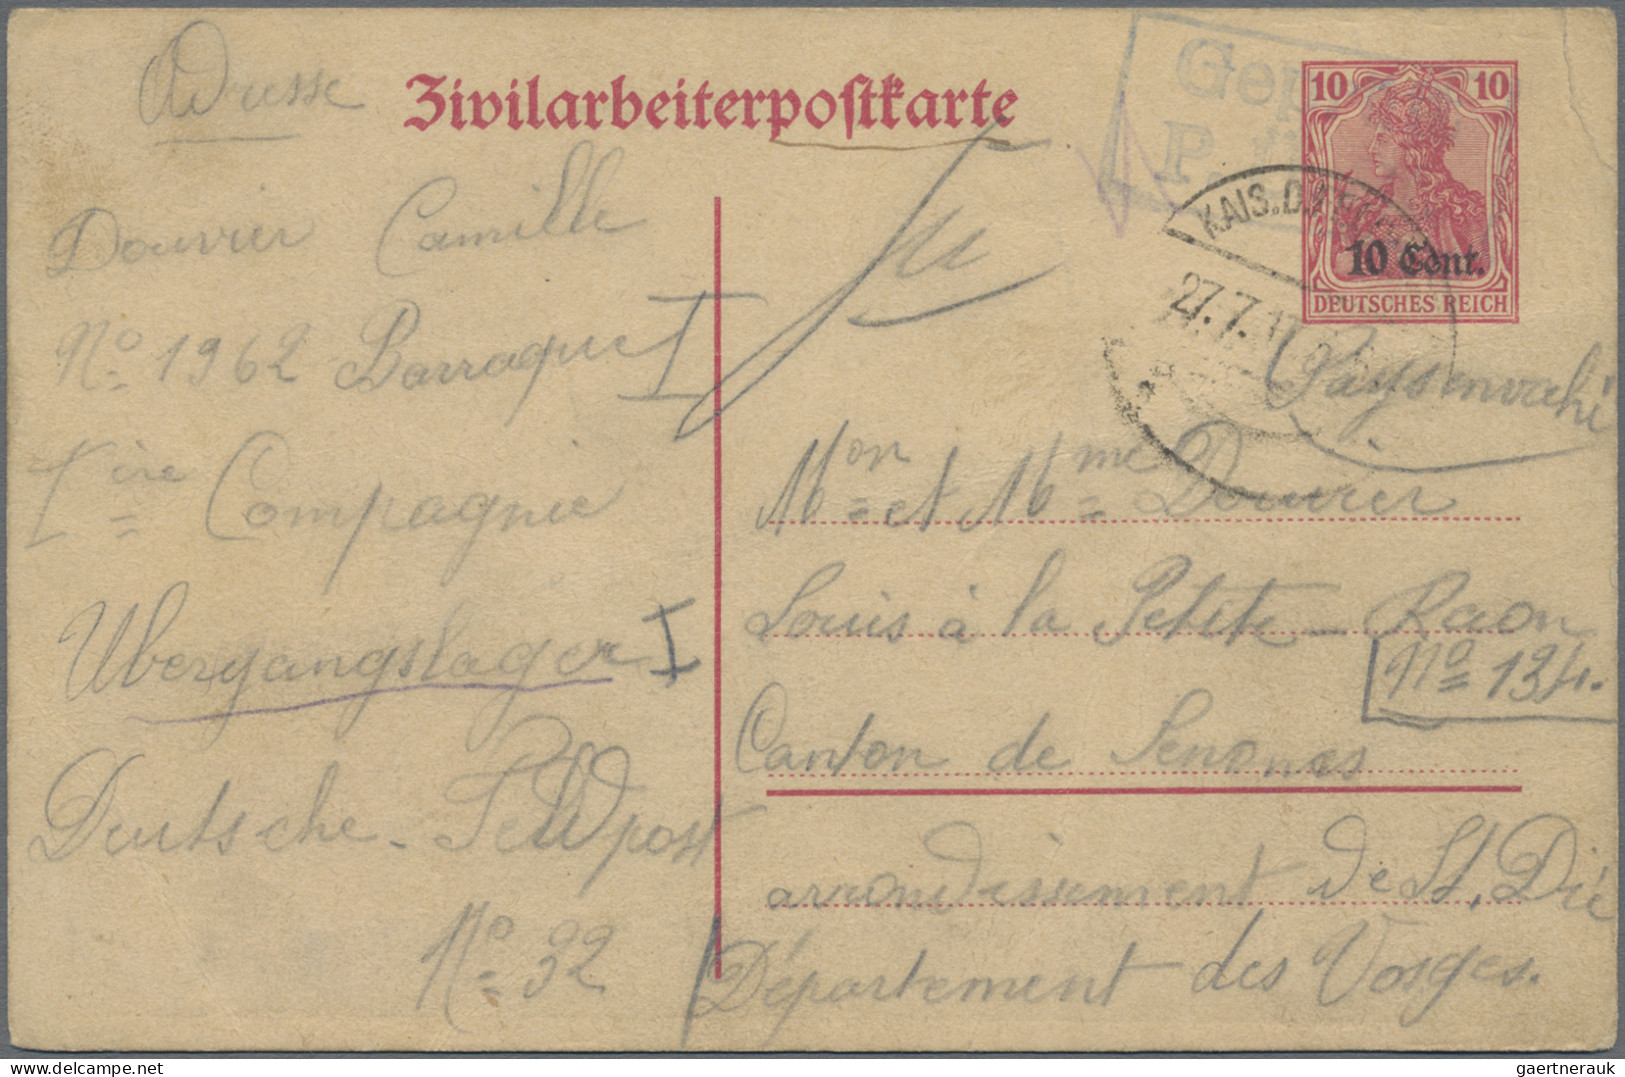 Adresse
Zivilarbeiterpostkarte
10 10
10 Cent.
DEUTSCHES REICH
KAIS.D.
27.7.17
Douvier Camille
No 1962 Barraque I
1ère Compagnie
Übergangslager I
Deutsche-Feldpost
No 32
Mon et Mme Douvier
Louis à la Petite-Raon
No 134.
Canton de Senones
arrondissement de St. Dié
Département des Vosges.
gaertnerauk